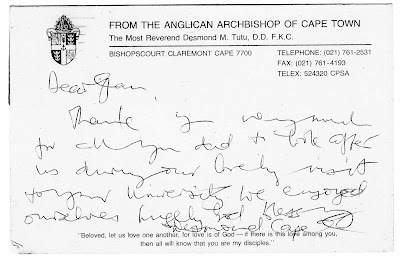 FROM THE ANGLICAN ARCHBISHOP OF CAPE TOWN
The Most Reverend Desmond M. Tutu, D.D. F.K.C.
BISHOPSCOURT CLAREMONT CAPE 7700
TELEPHONE: (021) 761-2531
FAX: (021) 761-4193
TELEX: 524320 CPSA
Dear
Thank you very much
for all you did to look after
us during our lovely visit
to your University. We enjoyed
ourselves hugely. God bless
Desmond Cape
"Beloved, let us love one another, for love is of God — if there is this love among you,
then all will know that you are my disciples."